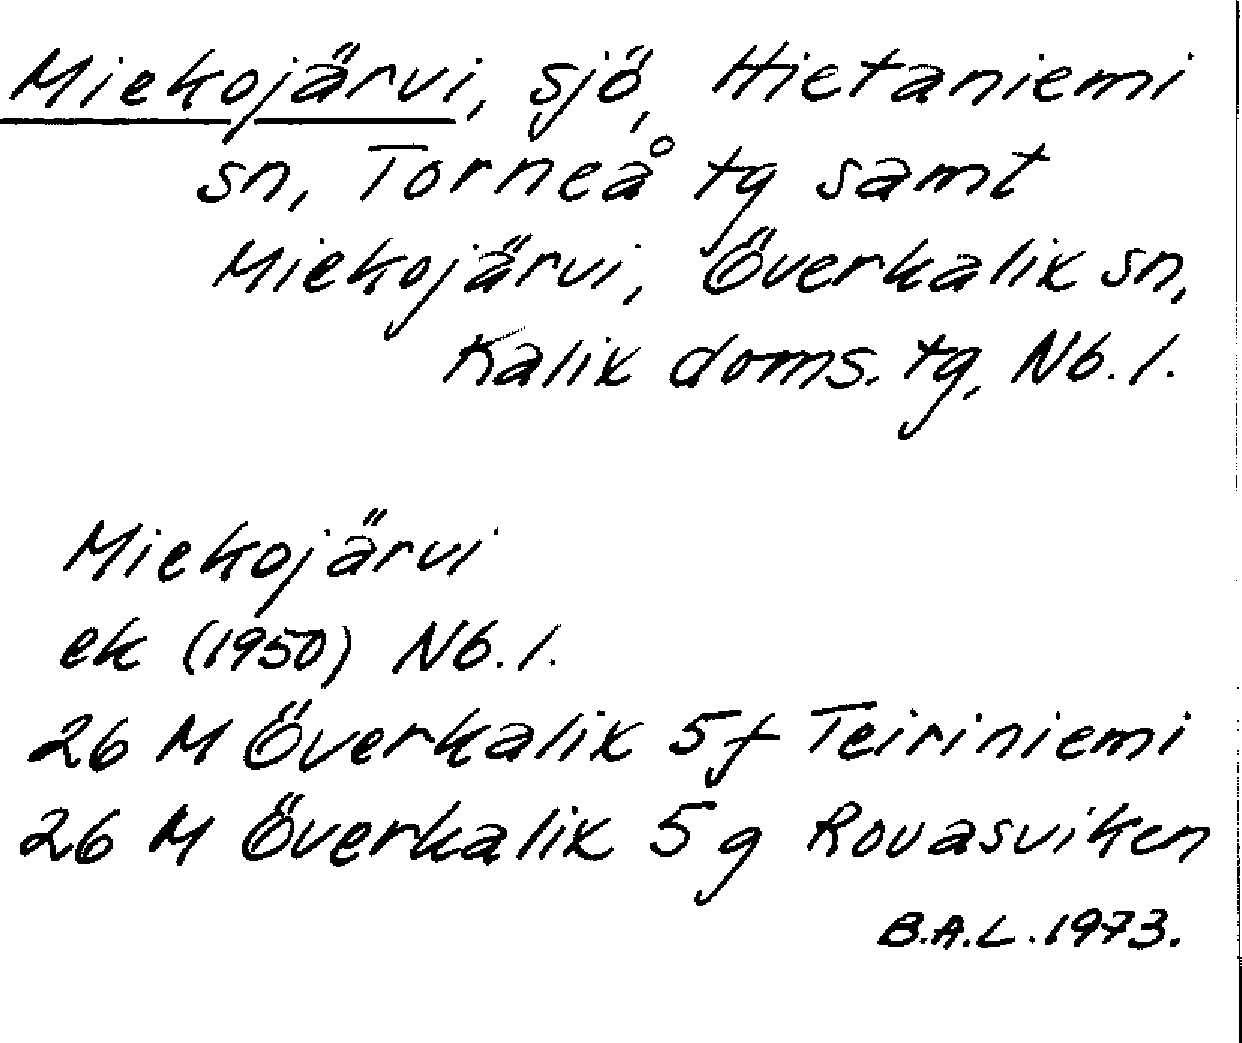 Miekojärvi, sjö, Hietaniemi
sn, Torneå tg samt
Miekojärvi, Överkalix sn,
Kalix doms. tg, Nb. l.
Miekojärvi
ek (1950) Nb. l.
26 M Överkalix 5 f Teiriniemi
26 M Överkalix 5 g Rovasviken
B.A.L. 1973.